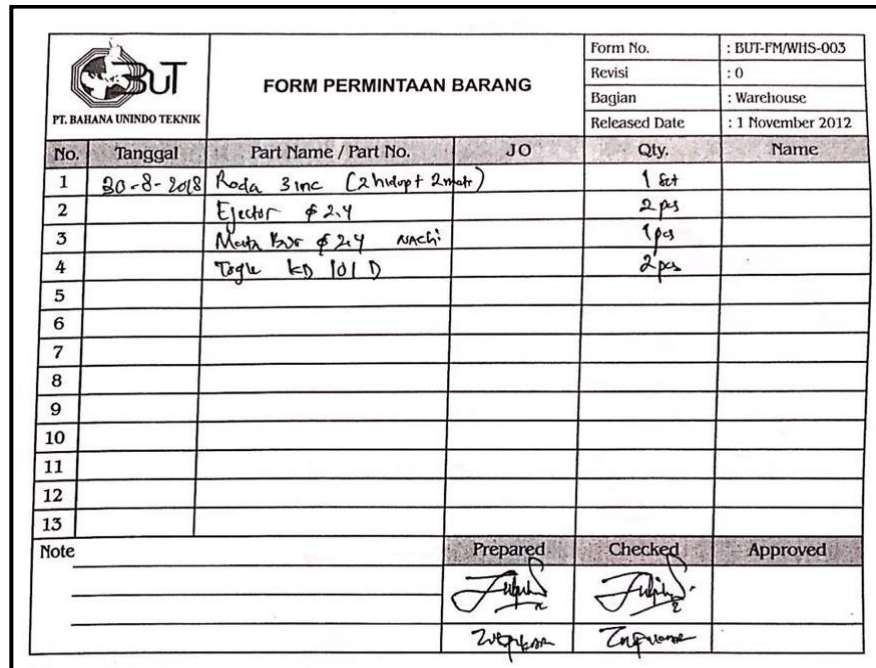 BUT
PT. BAHANA UNINDO TEKNIK
FORM PERMINTAAN BARANG
Form No. : BUT-FM/WHS-003
Revisi : 0
Bagian : Warehouse
Released Date : 1 November 2012
No. Tanggal Part Name / Part No. JO Qty. Name
1 30-8-2018 Roda 3 inc (2 hidup + 2 mati) 1 set
2 Ejector ϕ 2.4 2 pcs
3 Mata Bor ϕ 2.4 NACHi 1 pcs
4 Togle KD 101 D 2 pcs
5
6
7
8
9
10
11
12
13
Note Prepared Checked Approved